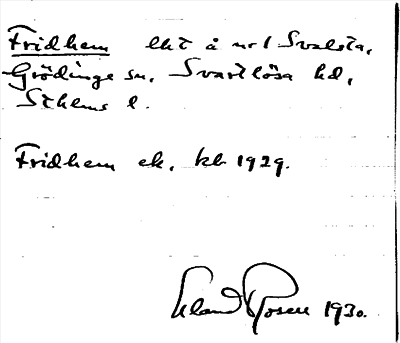 Fridhem lht å nr 1 Svalsta,
Grödinge sn, Svartlösa hd,
Sthlms l.
Fridhem ek. kb 1929.
Eland Rosell 1930.